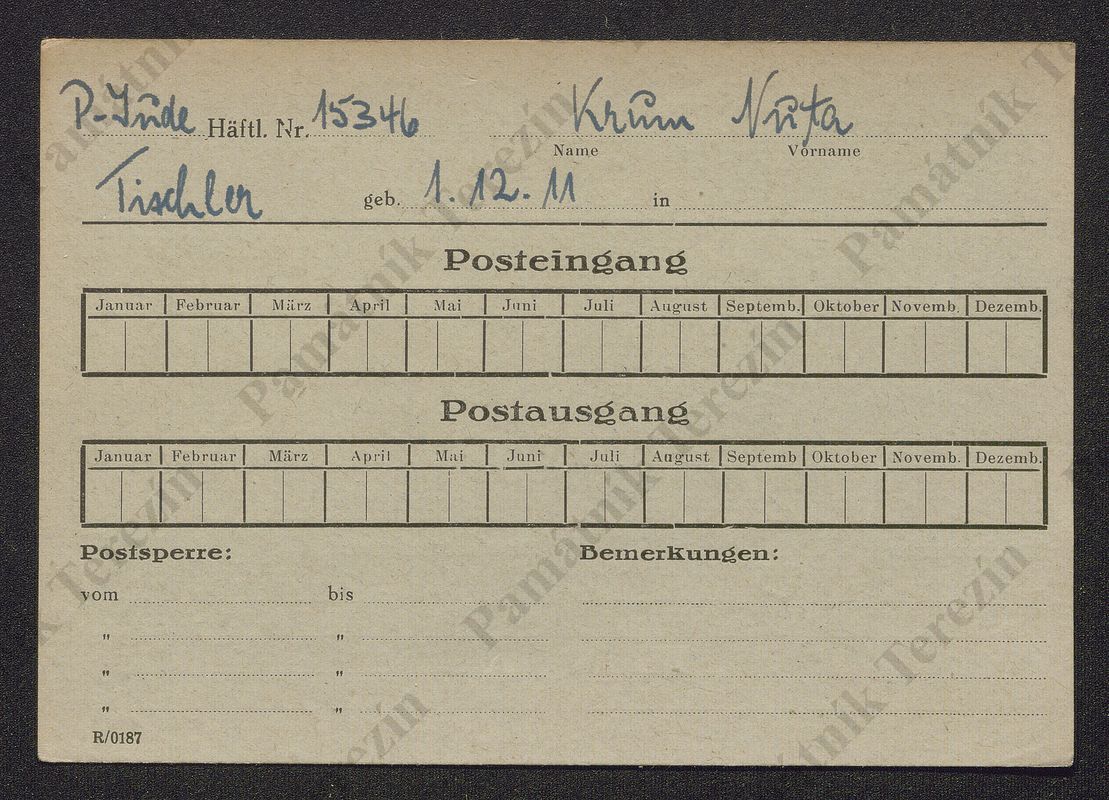 P-Jude Häftl. Nr. 15346 Krum Nuta
Name Vorname
Tischler geb. 1.12.11 in
Posteingang
Januar Februar März April Mai Juni Juli August Septemb. Oktober Novemb. Dezemb.
Postausgang
Januar Februar März April Mai Juni Juli August Septemb Oktober Novemb. Dezemb.
Postsperre: Bemerkungen:
vom bis
" "
" "
" "
R/0187
Památník Terezín